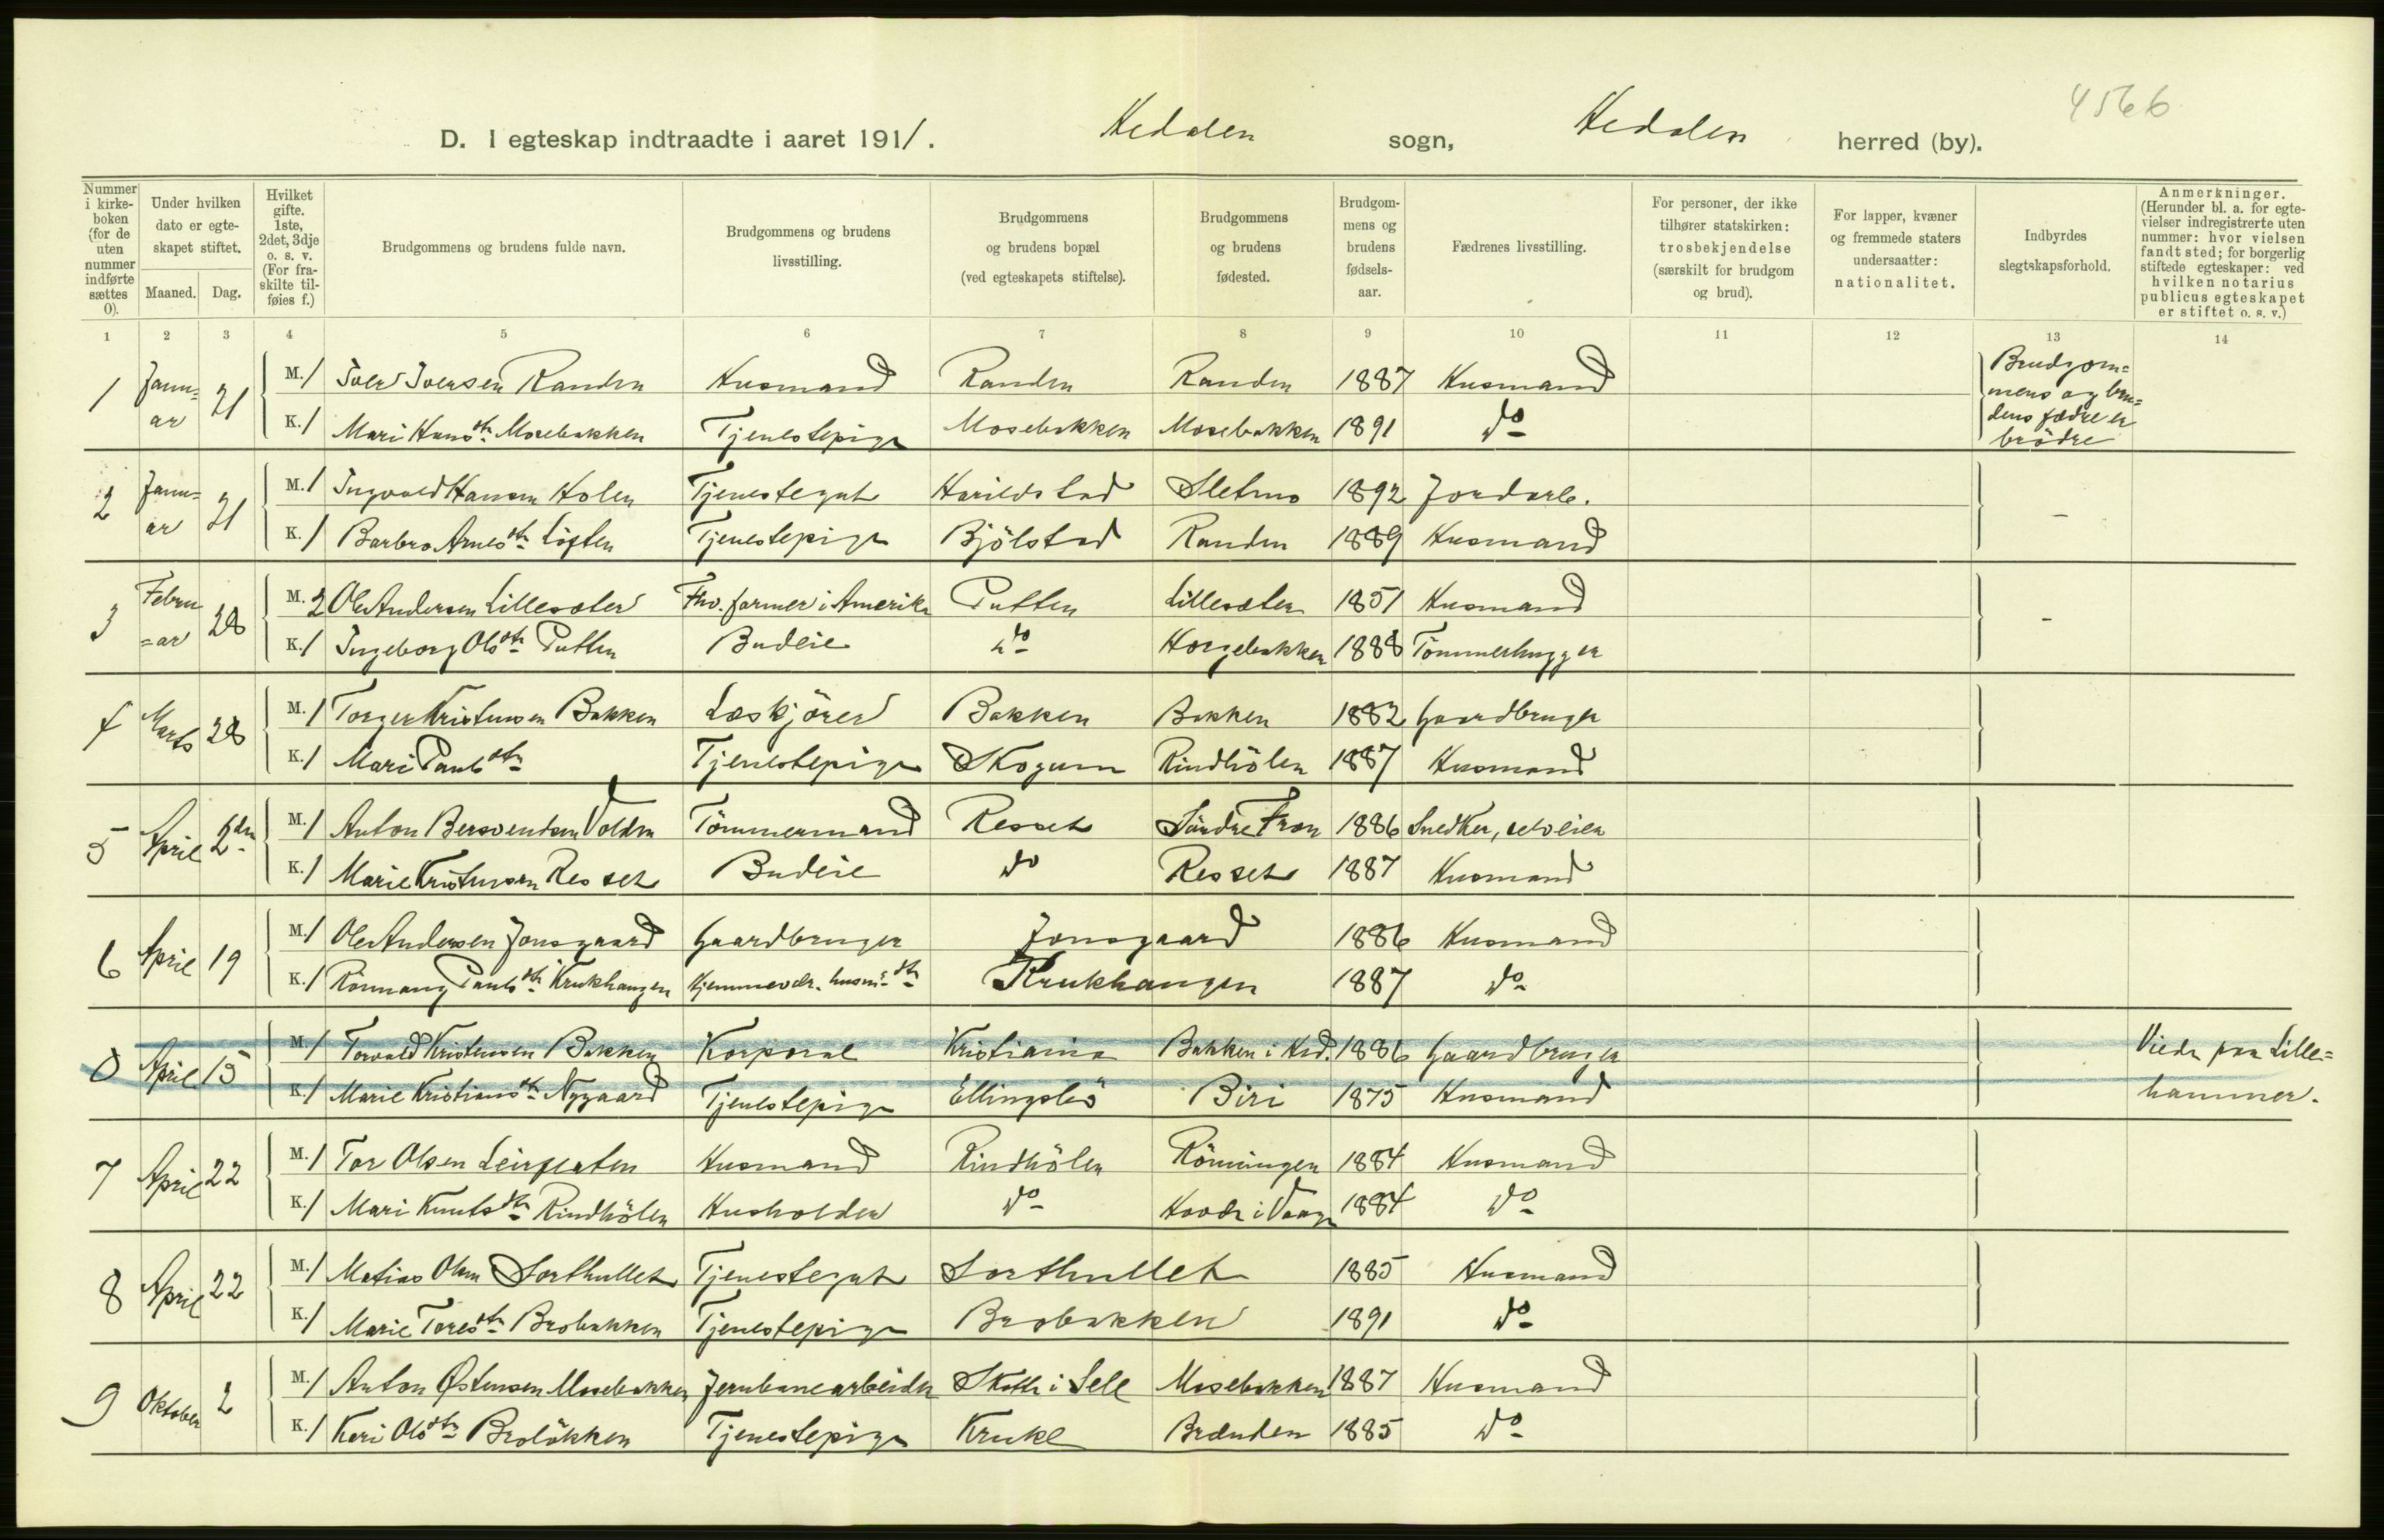 4566
D. I egteskap indtraadte i aaret 1911. Hedalen sogn, Hedalen herred (by).
Nummer i kirkeboken (for de uten nummer indførte sættes 0).
Under hvilken dato er egteskapet stiftet.
Maaned. Dag.
Hvilket gifte. 1ste, 2det, 3dje o. s. v. (For fraskilte tilføies f.)
Brudgommens og brudens fulde navn.
Brudgommens og brudens livsstilling.
Brudgommens og brudens bopæl (ved egteskapets stiftelse).
Brudgommens og brudens fødested.
Brudgommens og brudens fødselsaar.
Fædrenes livsstilling.
For personer, der ikke tilhører statskirken: trosbekjendelse (særskilt for brudgom og brud).
For lapper, kvæner og fremmede staters undersaatter: nationalitet.
Indbyrdes slegtskapsforhold.
Anmerkninger. (Herunder bl. a. for egtevielser indregistrerte uten nummer: hvor vielsen fandt sted; for borgerlig stiftede egteskaper: ved hvilken notarius publicus egteskapet er stiftet o. s. v.)
1 2 3 4 5 6 7 8 9 10 11 12 13 14
1 Janu=ar 21 M. 1 Iver Iversen Randen Husmand Randen Randen 1887 Husmand Brudgom=mens og bru=dens fædre er brødre
K. 1 Mari Hansdtr Mosebakken Tjenestepige Mosebakken Mosebakken 1891 do
2 Janu=ar 21 M. 1 Ingvald Hansen Holen Tjenestegut Harildstad Sletmo 1892 Jordarb. –
K. 1 Barbro Arnesdtr Løften Tjenestepige Bjölstad Randen 1889 Husmand
3 Febru=ar 28 M. 2 Ole Andersen Lillesæter Fhv. farmer i Amerika Putten Lillesæter 1851 Husmand –
K. 1 Ingeborg Olsdtr Putten Budeie do Horgebakken 1888 Tömmerhugger
4 Marts 28 M. 1 Torger Kristensen Bakken Læskjörer Bakken Bakken 1882 Gaardbruger
K. 1 Mari Paulsdtr Tjenestepige Skogum Rindhölen 1887 Husmand
5 April 2den M. 1 Anton Bersvendsen Volden Tömmermand Resset Söndre Fron 1886 Snedker, selveier
K. 1 Marie Kristensen Resset Budeie do Resset 1887 Husmand
6 April 19 M. 1 Ole Andersen Jonsgaard Gaardbruger Jonsgaard 1886 Husmand
K. 1 Rönnaug Paulsdtr Krukhaugen Hjemmevær. husm.dtr Krukhaugen 1887 do
0 April 15 M. 1 Torvald Kristensen Bakken Korporal Kristiania Bakken i Hed. 1886 Gaardbruger Viede paa Lille=
K. 1 Marie Kristiansdtr Nygaard Tjenestepige Biri 1875 Husmand hammer.
7 April 22 M. 1 Tor Olsen Leirflaten Husmand Rindhölen Rönningen 1884 Husmand
K. 1 Mari Knutsdtr Rindhölen Husholder do i Vaage 1884 do
8 April 22 M. 1 Matias Olsen Sorthullet Tjenestegut Sorthullet 1885 Husmand
K. 1 Marie Toresdtr Brobakken Tjenestepige Brobakken 1891 do
9 Oktober 2 M. 1 Anton Østensen Mosebakken Jernbanearbeider i Sell Mosebakken 1887 Husmand
K. 1 Kari Olsdtr Brolökken Tjenestepige Kruke Brænden 1885 do